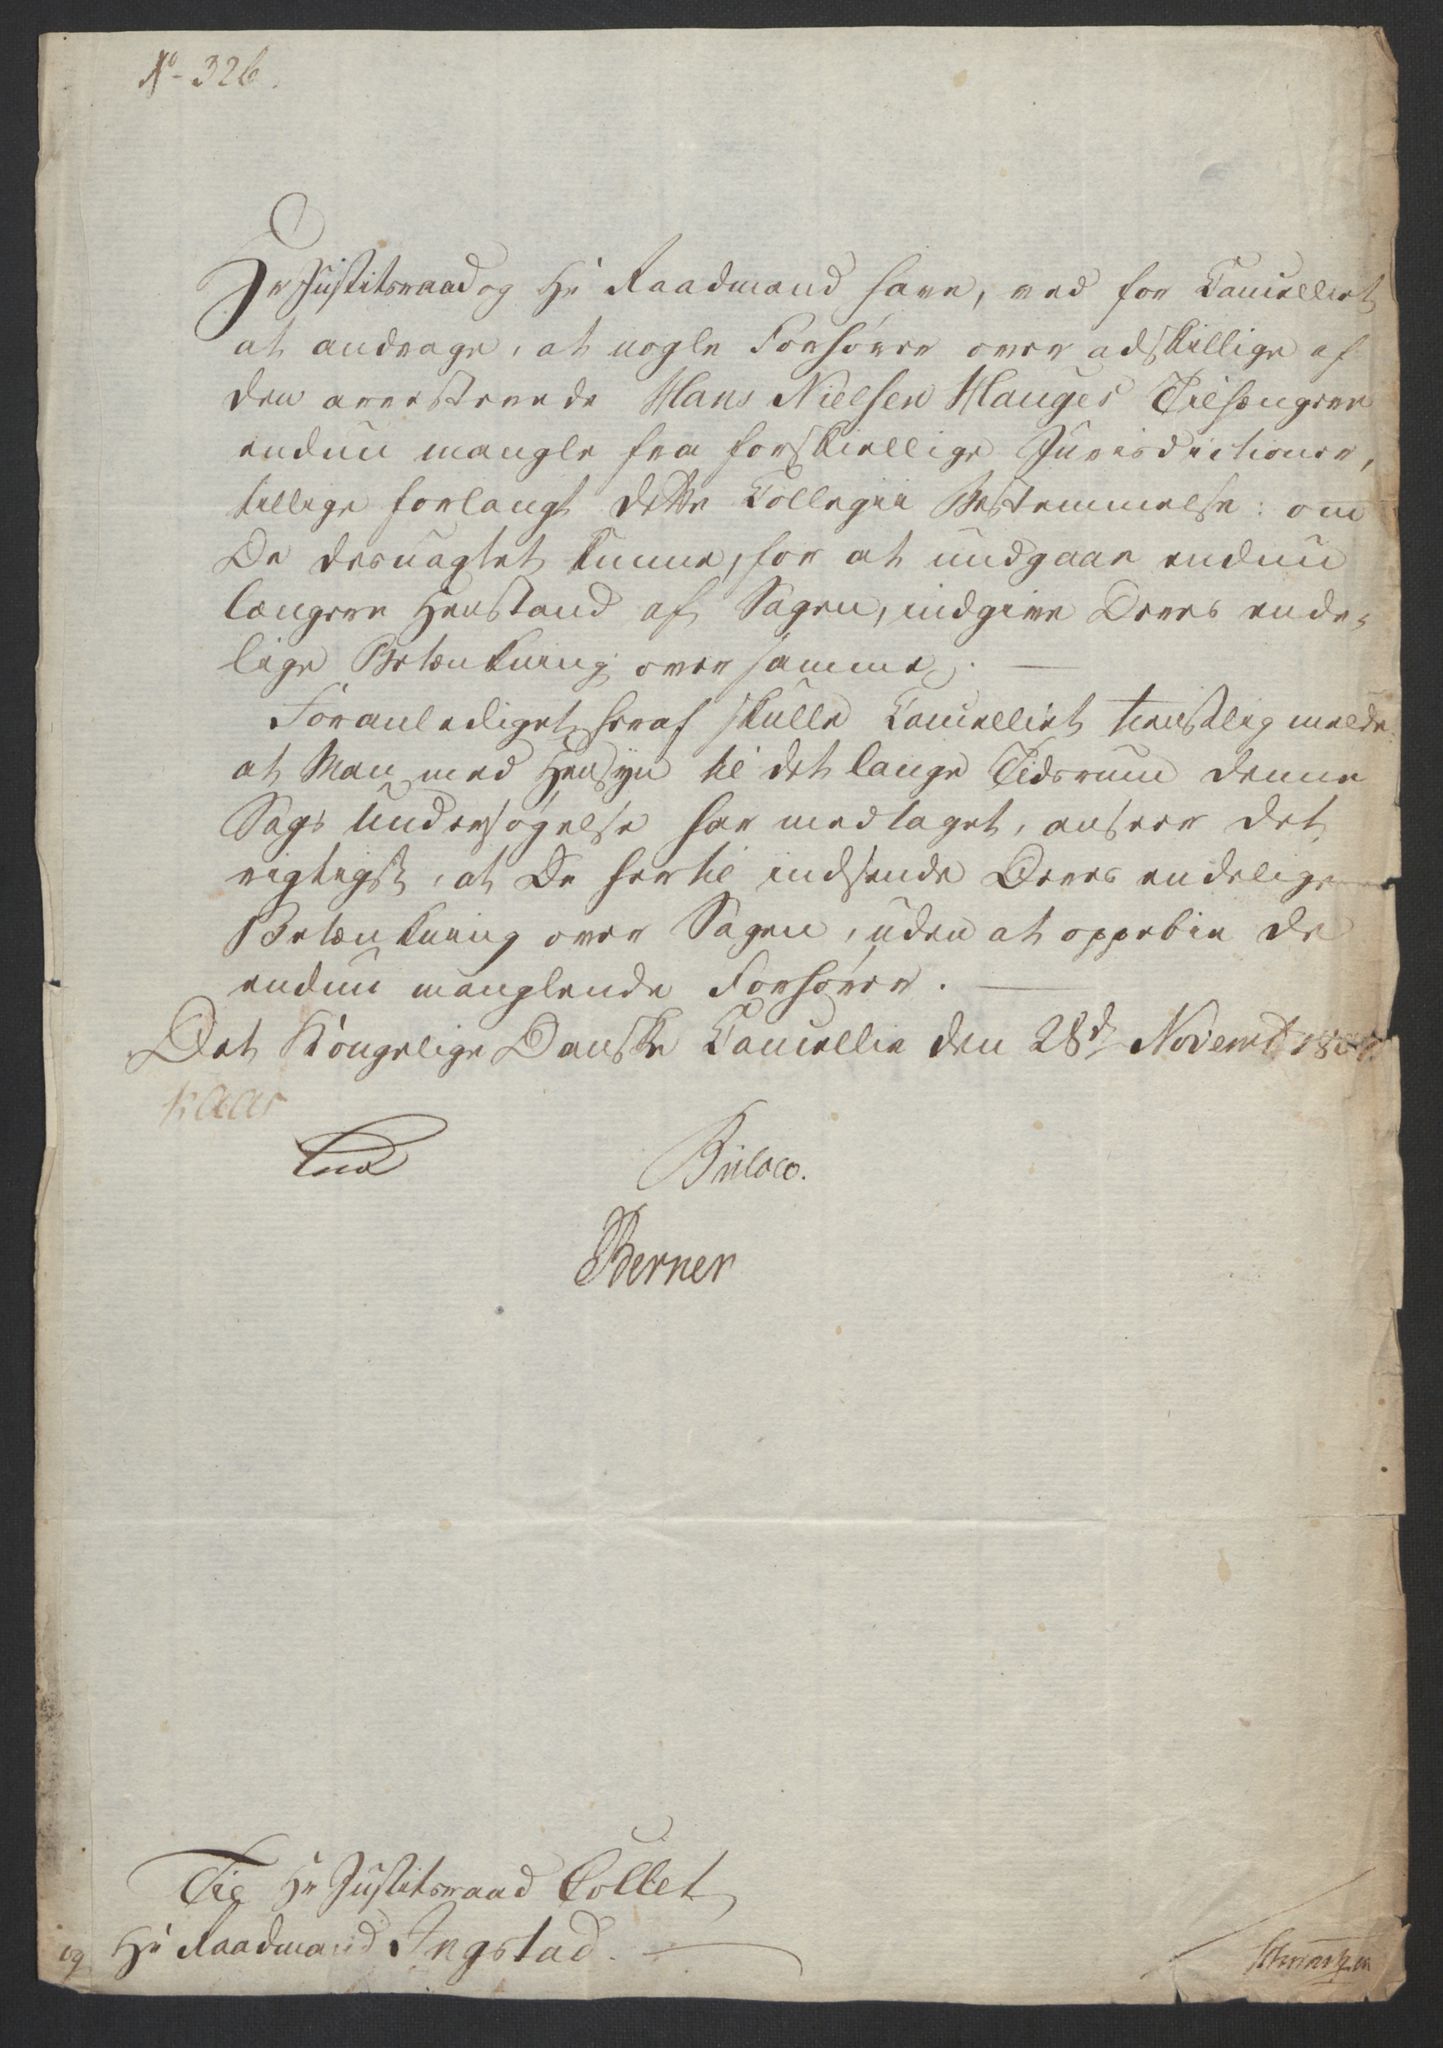 No 326.
Hr Justitsraad og Hr Raadmand have, ved for Cancelliet
at andrage, at nogle Forhører over adskillige af
den arresterede Hans Nielsen Hauges Tilhængere
endnu mangle fra forskiellige Jurisdictioner,
tillige forlangt dette Collegii Bestemmelse: om
De desuagtet kunne, for at undgaae endnu
længere Henstand af Sagen, indgive Deres ende-
lige Betænkning over samme. —
Foranlediget heraf skulle Cancelliet tienstlig melde
at Man med Hensyn til det lange Tidsrum denne
Sags Undersøgelse har medtaget, anseer det
rigtigst, at De hertil indsende Deres endelige
Betænkning over Sagen, uden at oppebie de
endnu manglende Forhører. —
Det Kongelige Danske Cancellie den 28d Novembr
Kaas
Bülow.
Berner
Til Hr Justitsraad Collet
og Hr Raadmand Ingstad. —